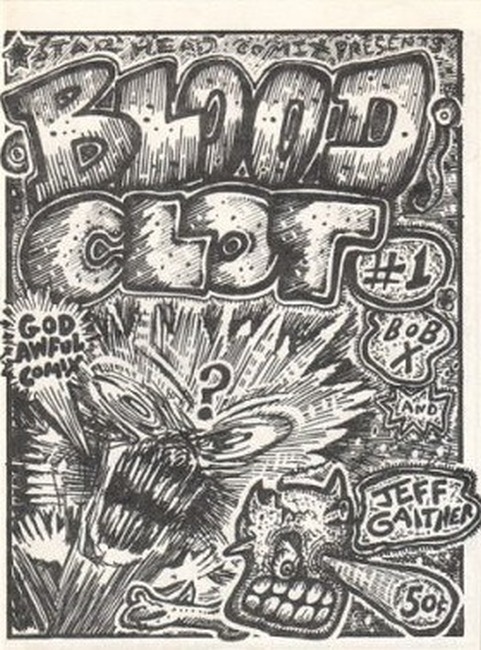 STAR HEAD COMIX PRESENTS
BLOOD
CLOT
#1
GOD
AWFUL
COMIX
?
BOB
X
AND
JEFF
GAITHER
50¢